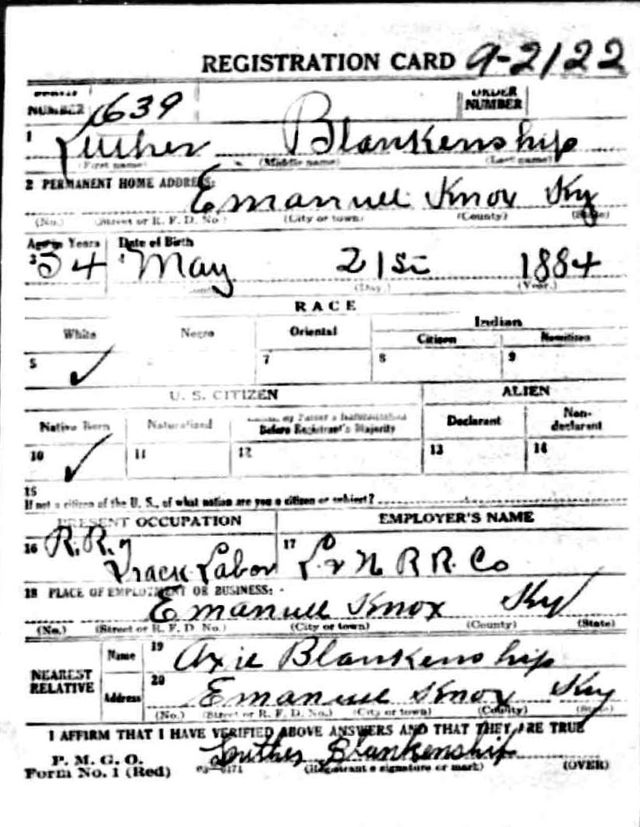 REGISTRATION CARD 9-2122
SERIAL NUMBER 1639 ORDER NUMBER
1 Luther Blankenship
(First name) (Middle name) (Last name)
2 PERMANENT HOME ADDRESS:
Emanuel Knox Ky
(No.) (Street or R. F. D. No.) (City or town) (County) (State)
Age in Years Date of Birth
3 34 4 May 21st 1884
(Day.) (Year.)
RACE
White Negro Oriental Indian
Citizen Noncitizen
5 ✓ 7 8 9
U. S. CITIZEN ALIEN
Native Born Naturalized Citizen by Father's Naturalization Before Registrant's Majority Declarant Non-declarant
10 ✓ 11 12 13 14
15
If not a citizen of the U. S., of what nation are you a citizen or subject?
PRESENT OCCUPATION EMPLOYER'S NAME
16 R.R. Track Labor 17 L & N R R. Co
18 PLACE OF EMPLOYMENT OR BUSINESS:
Emanuel Knox Ky
(No.) (Street or R. F. D. No.) (City or town) (County) (State)
NEAREST RELATIVE Name 19 Axie Blankenship
Address 20 Emanuel Knox Ky
(No.) (Street or R. F. D. No.) (City or town) (County) (State)
I AFFIRM THAT I HAVE VERIFIED ABOVE ANSWERS AND THAT THEY ARE TRUE
P. M. G. O.
Form No. 1 (Red) Luther Blankenship
(Registrant's signature or mark) (OVER)